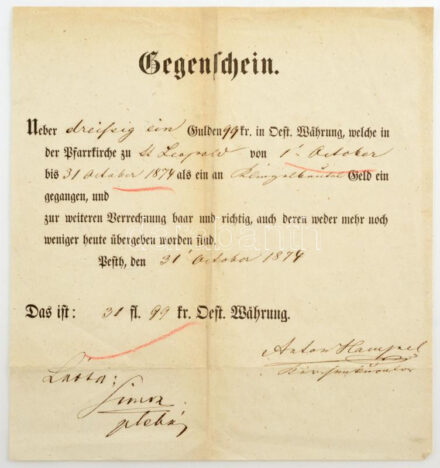 Gegenschein.
Ueber dreißig ein Gulden 99 kr. in Oest. Währung, welche in
der Pfarrkirche zu St Leopold von 1t October
bis 31 October 1874 als ein an Klingelbeutel Geld ein
gegangen, und
zur weiteren Verrechnung baar und richtig, auch deren weder mehr noch
weniger heute übergeben worden sind.
Pesth, den 31t October 1874
Das ist: 31 fl. 99 kr. Oest. Währung.
Anton Hampel
Kirchenkurator
Látta:
Simon
pleb